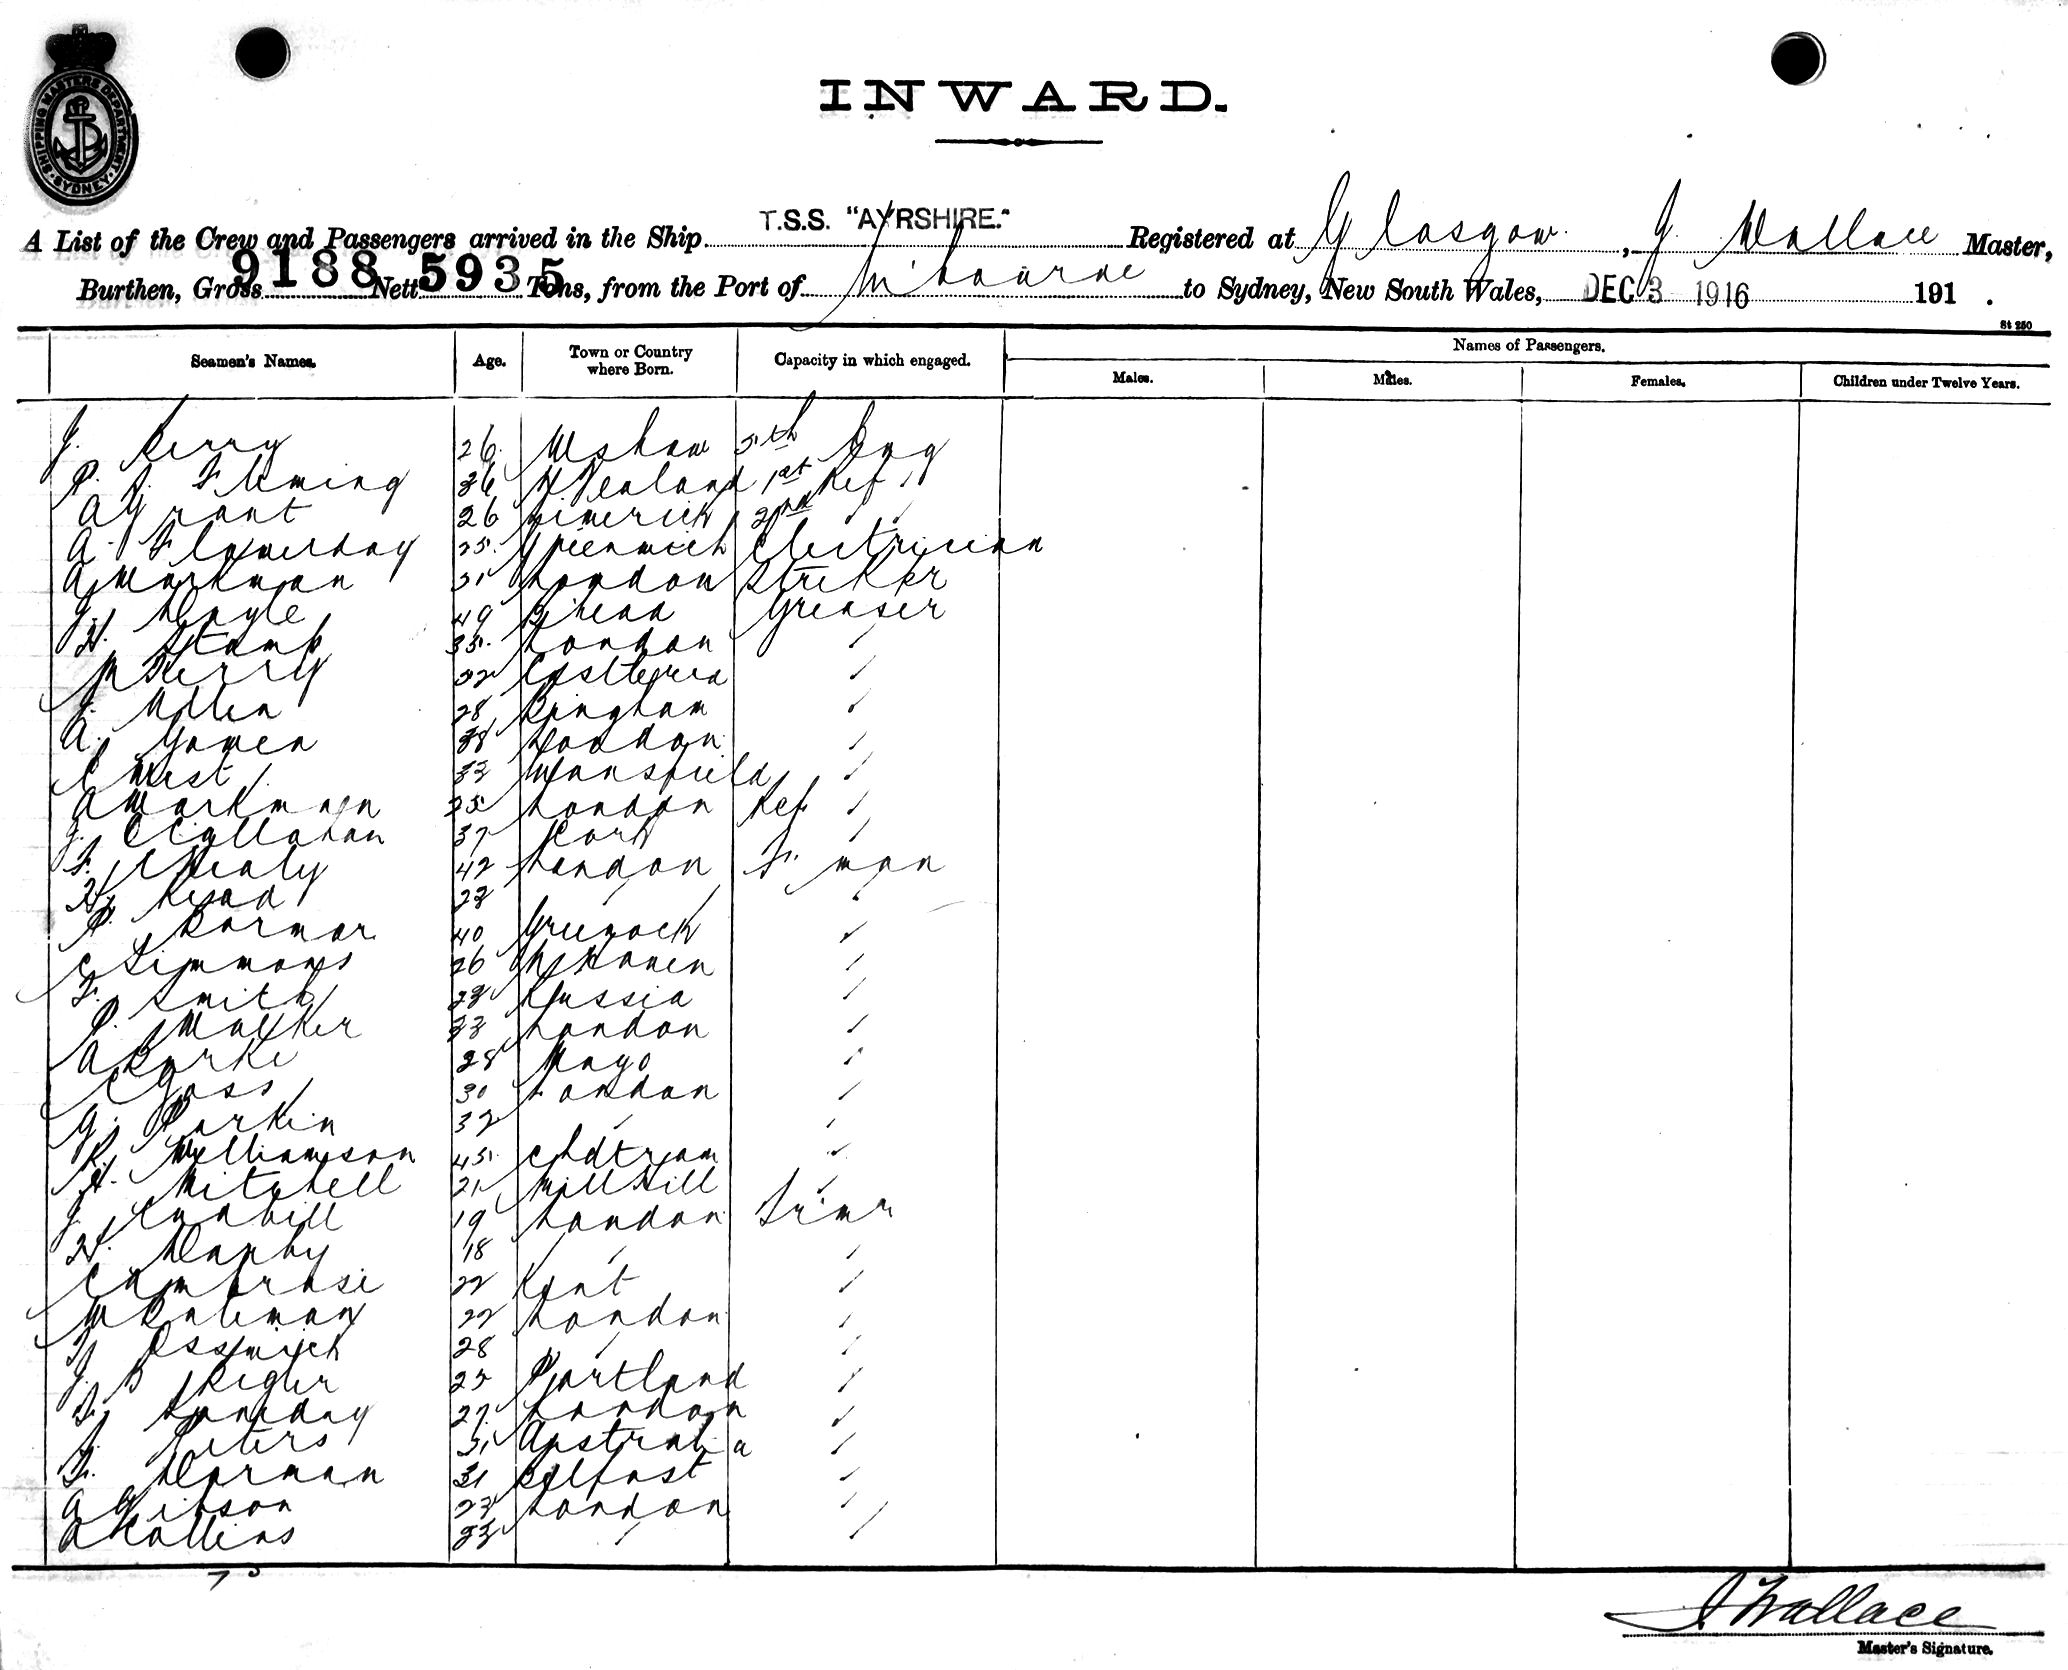 SHIPPING MASTERS DEPARTMENT
SYDNEY
INWARD.
A List of the Crew and Passengers arrived in the Ship T.S.S. "AYRSHIRE." Registered at Glasgow, J Wallace Master,
Burthen, Gross 9188 Nett 5935 Tons, from the Port of M'bourne to Sydney, New South Wales, DEC 3 1916 191 .
St 250
Seamen's Names. Age. Town or Country where Born. Capacity in which engaged. Names of Passengers.
Males. Males. Females. Children under Twelve Years.
J. Berry 26 Wishaw 5th Eng
P. J. Fleming 36 N Zealand 1st Ref "
A Grant 26 Limerick 2nd " "
A. Flowerday 25 Greenwich Electrician
A Workman 31 London Striker
J. Doyle 49 B'head Greaser
H. Stamp 35 London "
M Berry 32 "
J. Allen 28 "
A. Gowen 38 London "
C West 33 Mansfield "
A Workman 25 London Ref "
J. O'Callahan 37 Cork "
F. Healy 42 London F. man
H. Read 23 " "
P. Gormor 40 Greenock "
C Simmons 26 "
F. Smith 23 Russia "
P. Walker 33 London "
A Burke 28 Mayo "
C Goss 30 London "
G. Parkin 32 " "
R. Williamson 45 "
A. Mitchell 21 Mill Hill "
J. Cudhill 19 London Trimr
H. Danby 18 " "
C Ambrose 22 Kent "
W Bateman 22 London "
28 " "
J B Rigler 25 Portland "
F. 27 London "
J. Peters 31 Australia "
F. Dorman 31 Belfast "
A Gibson 23 London "
A Collins 33 " "
75
J Wallace
Master's Signature.